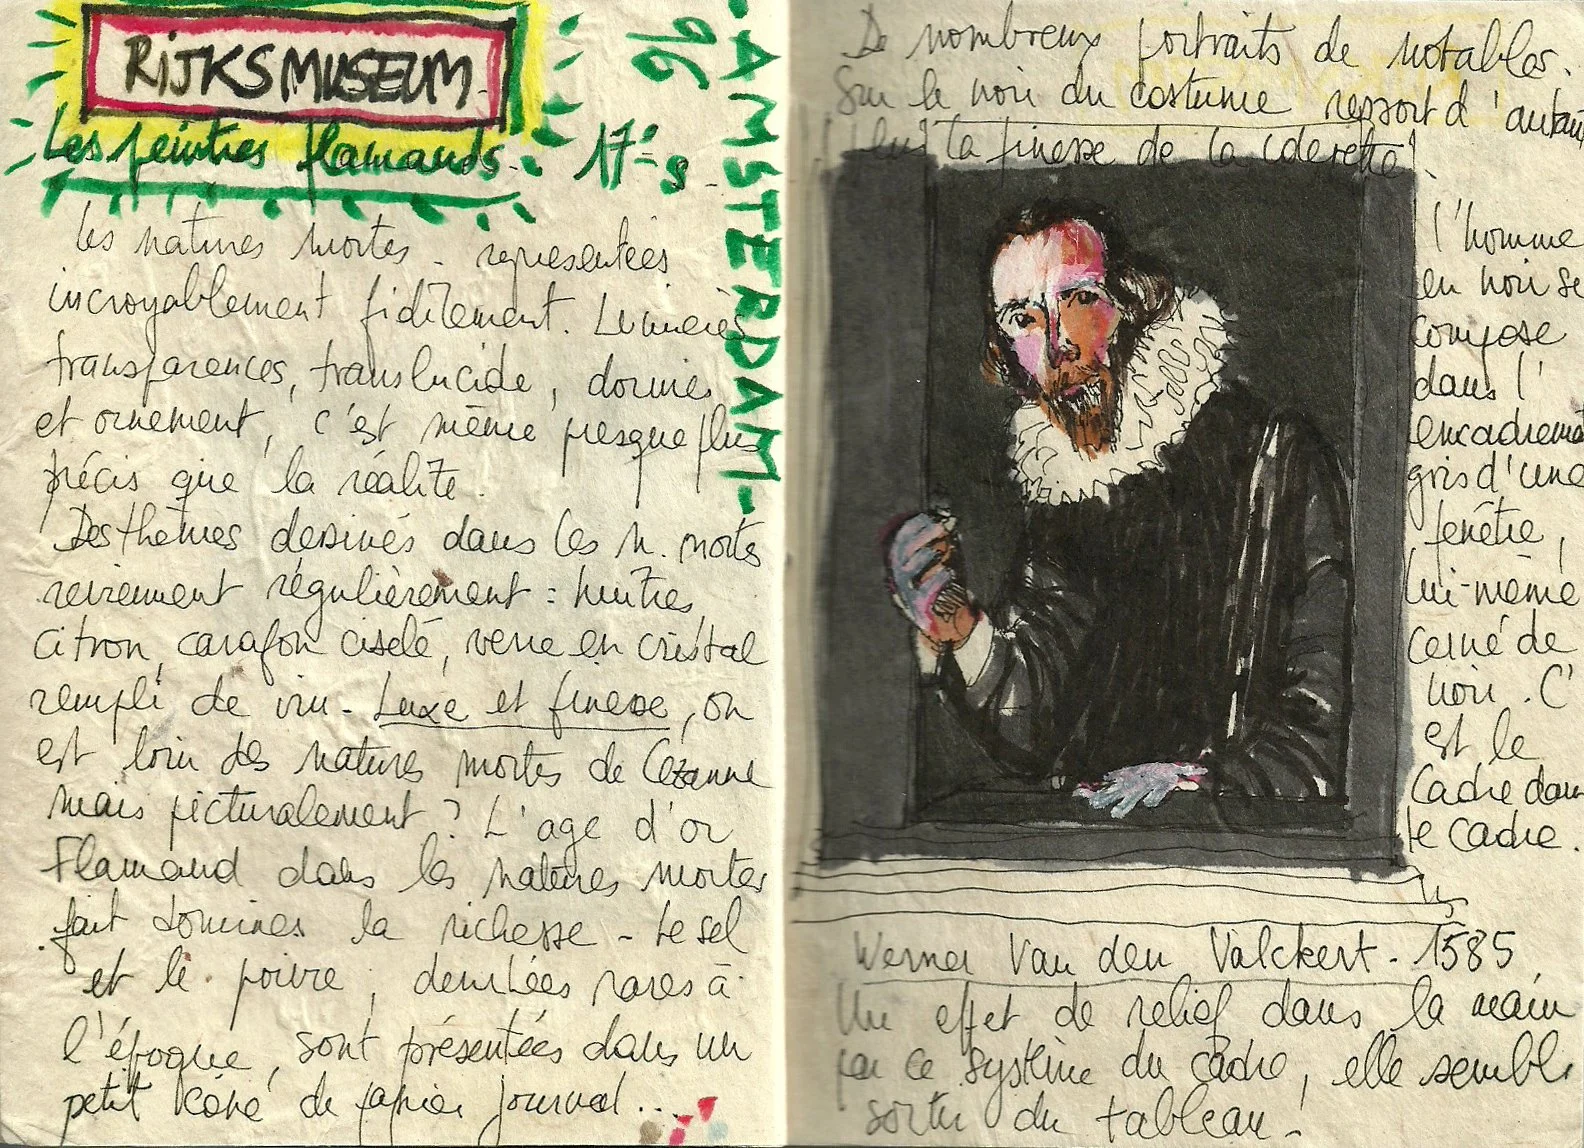 RIJKSMUSEUM.
Les peintres flamands. 17e s.
96
-AMSTERDAM-
Les natures mortes - representées
incroyablement fidèlement. Lumières
transparences, translucide, dorures
et ornement, c'est même presque plus
précis que la réalité.
Des thèmes dessinés dans les n. mortes
reviennent régulièrement : huîtres,
citron, carafon ciselé, verre en cristal
rempli de vin - Luxe et finesse, on
est loin des natures mortes de Cezanne
mais picturalement ? L'age d'or
Flamand dans les natures mortes
fait dominer la richesse - le sel
et le poivre, denrées rares à
l'époque, sont présentées dans un
petit cône de papier journal...
De nombreux portraits de notables.
Sur le noir du costume ressort d'autant
plus la finesse de la colerette.
l'homme
en noir se
compose
dans l'
encadrement
gris d'une
fenêtre,
lui-même
cerné de
noir. C'
est le
Cadre dans
le cadre.
Werner Van den Valckert - 1585,
Un effet de relief dans la main
par ce système du cadre, elle semble
sortir du tableau !